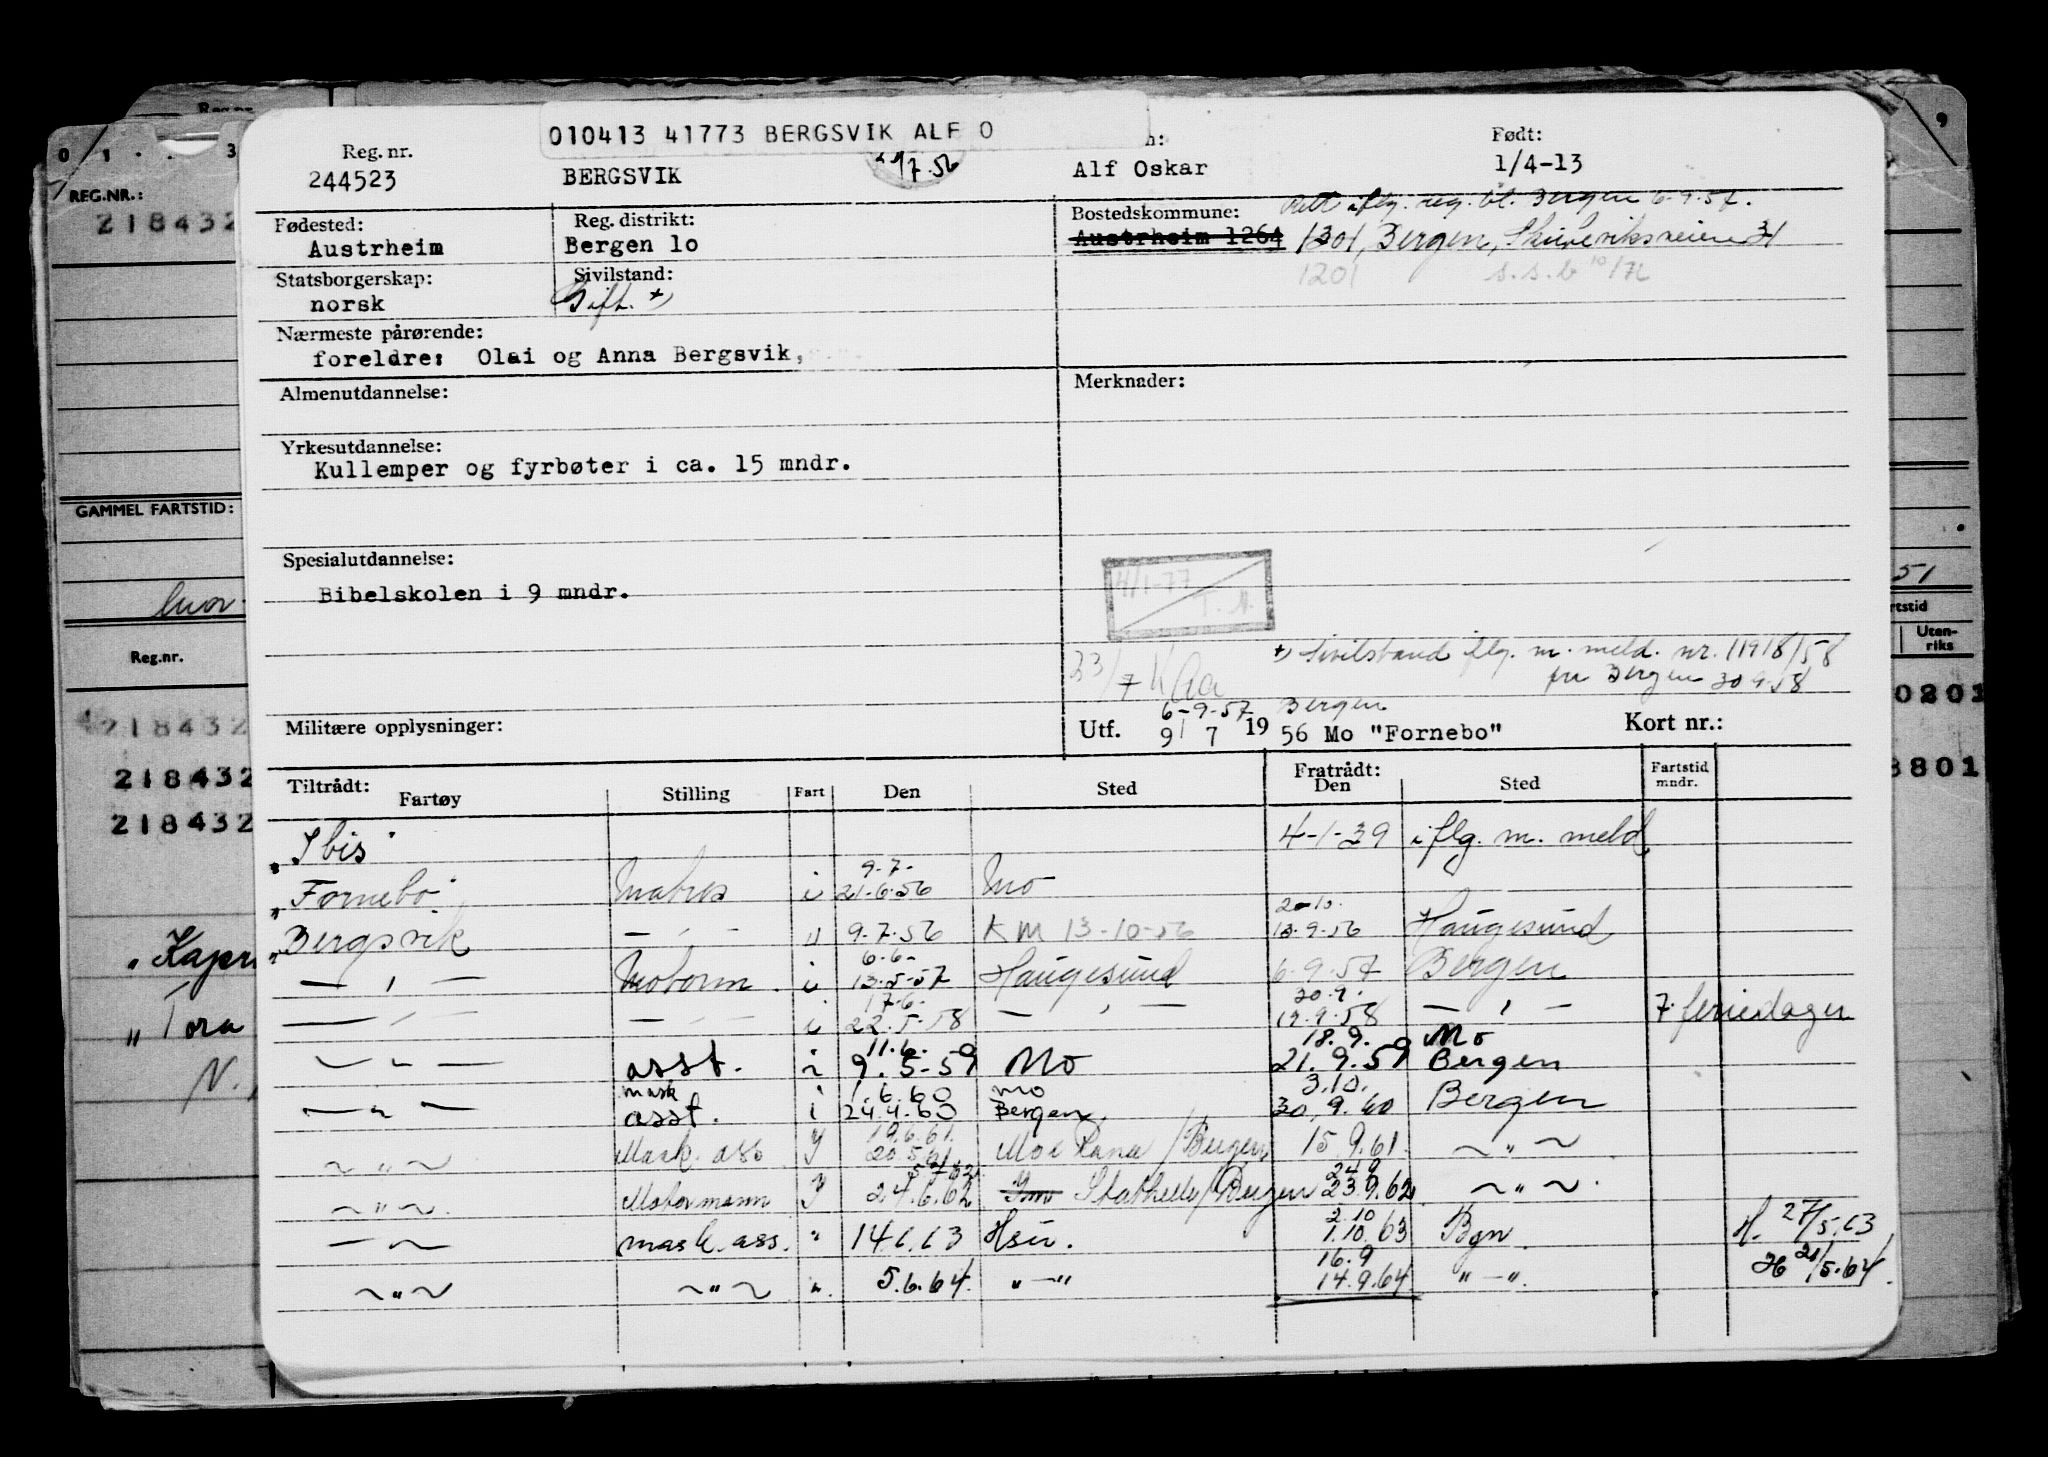 010413 41773 BERGSVIK ALF O
Reg.nr.
Født:
244523 BERGSVIK 17.56 Alf Oskar 1/4-13
REG.NR.:
218432
Fødested: Reg. distrikt: Bostedskommune: iflg. reg. bl. Bergen 6-9-57.
Austrheim Bergen lo Austrheim 1264 1301, Bergen,
1201 s.s.b 10/72
Statsborgerskap: Sivilstand:
norsk Gift. +)
Nærmeste pårørende:
foreldre: Olai og Anna Bergsvik,
Almenutdannelse: Merknader:
Yrkesutdannelse:
Kullemper og fyrbøter i ca. 15 mndr.
GAMMEL FARTSTID:
Spesialutdannelse:
Bibelskolen i 9 mndr.
4/1-77
T. A.
51
rtstid
Reg.nr.
Uten-
riks
+) Sivilstand iflg. m. meld. nr. 11918/58
fra Bergen 30-9-58
6-9-57 Bergen
Militære opplysninger: Utf. 9/ 7 19 56 Mo "Fornebo" Kort nr.:
0201
218432
218432
8801
218432
Tiltrådt: Fratrådt:
Fartøy Stilling Fart Den Sted Den Sted Fartstid mndr.
"Ibis" 4-1-39 iflg. m. meld
9.7.
"Fornebo" Matros i 21-6-56 Mo
2-10.
"Bergsvik — " — " 9.7.56 KM 13-10-56 13.9.56 Haugesund
6.6-
— " — Motorm. i 13.5-57 Haugesund 6-9-57 Bergen
17.6. 20.9.
— " — — " — i 22.5.58 — " — 19.9.58 — " — 7 feriedager
11.6. 18.9. Mo
— " — asst. i 9.5-59 Mo 21.9.59 Bergen
mask 1.6.60 Mo 3.10.
— " — asst. i 24.4.60 Bergen. 30.9.60 Bergen
19.6.61.
~ " ~ Mask. ass Y 20.5.61. Mo i Rana / Bergen 15.9.61. ~ " ~
5/7.62. 24.9
~ " ~. Motormann Y 24.6.62 Stathelle/Bergen 23.9.62 ~ " ~.
2.10
— " ~ mask. ass. " 14.6.63 Hsu. 1.10.63 Bgn. H. 27/5.63
16.9
~ " ~ ~ " ~ ". 5.6.64. " — " 14.9.64 " — ". H 21/5.64.
"Tora
N.